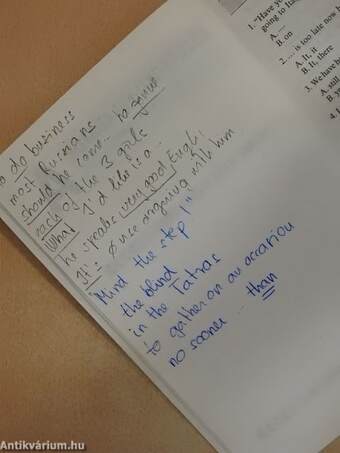 to do business
most Rumans
should he come... to arrive
each of the 3 girls
What I'd like is a...
he speaks very good Engl.
It's Ø use arguing with him
"Mind the step!"
the blind
in the Tatras
to gather on an occasion
no sooner ... than
1. "Have you
going to Ita
A. ...
B. on
2. .... is too late now
A. It, it
B. It, there
3. We have
A. still
4.
Antikvárium.hu